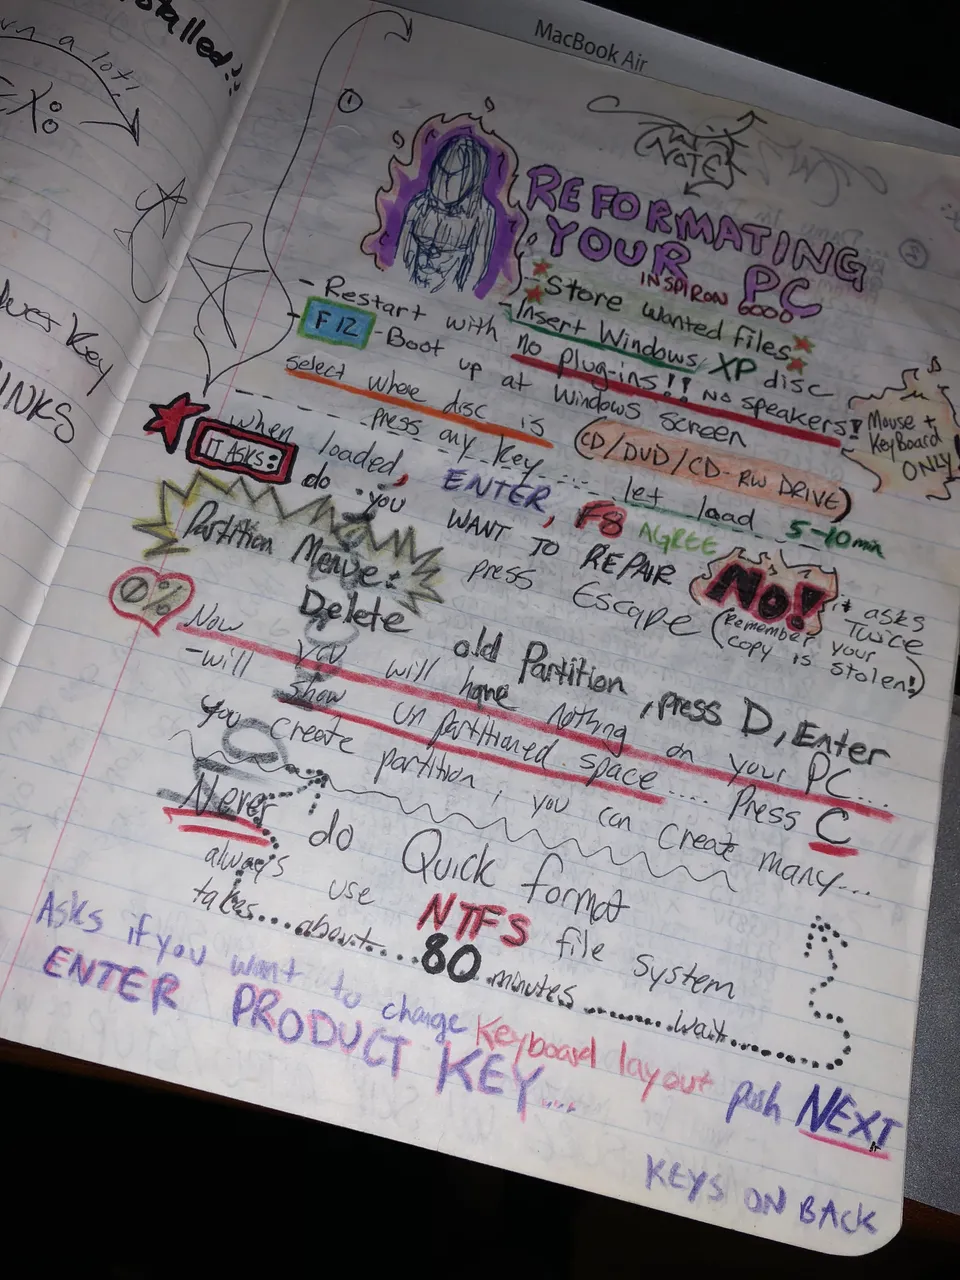 MacBook Air
stalled!
a lot!
EX:
Key
INKS
①
NOTE
REFORMATING
YOUR PC
INSPIRON 6000
- Store wanted files
- Insert Windows XP disc
- Restart with no plug-ins!! No speakers!!
Mouse +
KeyBoard
ONLY
- F12 - Boot up at Windows screen
select where disc is (CD/DVD/CD-RW DRIVE)
- - - - - - press any key - - - - - let load 5-10min
when loaded, ENTER, F8 AGREE
IT ASKS: do you WANT TO REPAIR No! it asks
Twice
press Escape (Remember your
copy is stolen!)
Partition Menue:
Delete old Partition, press D, Enter
0%
Now you will have nothing on your PC...
- will show unpartitioned space.... Press C
you create partition, you can create many...
Never do Quick format
always use NTFS file system
takes...about....80 minutes.........wait........
Asks if you want to change Keyboard layout push NEXT
ENTER PRODUCT KEY....
KEYS ON BACK